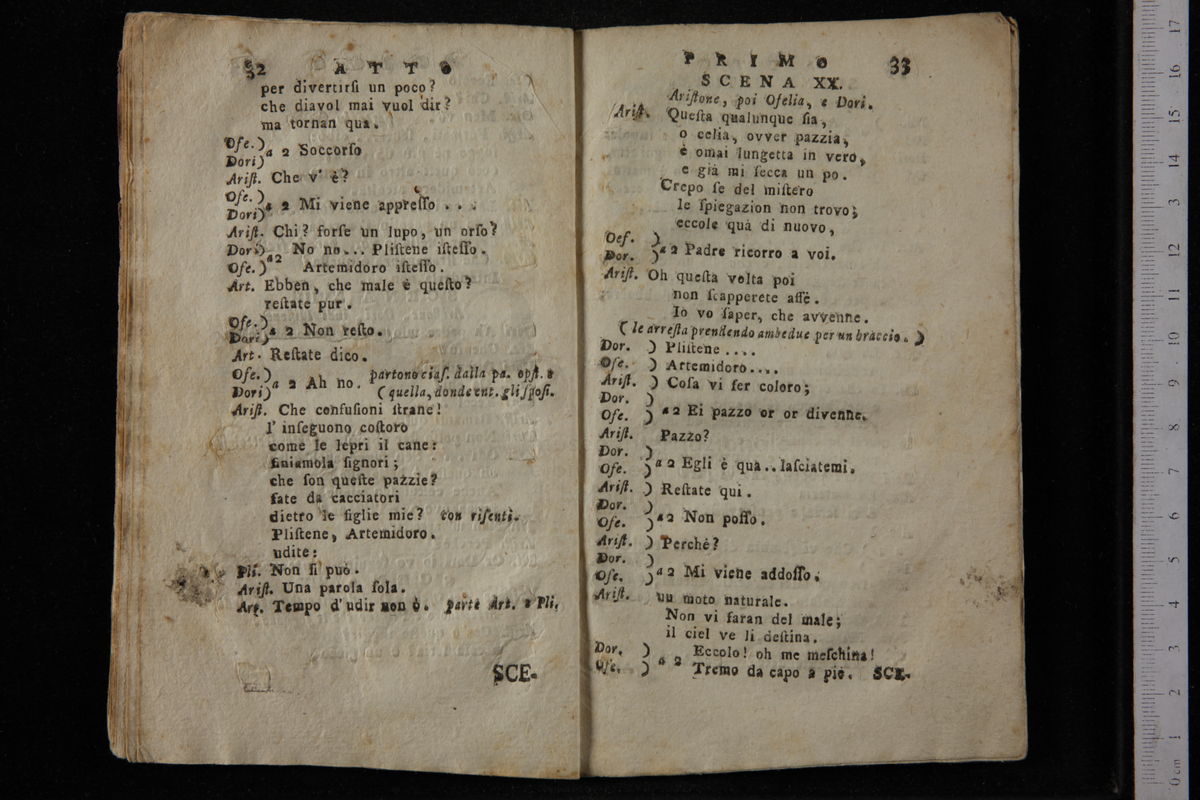 32 ATTO
per divertirſi un poco?
che diavol mai vuol dir?
ma tornan qua.
Ofe. )
Dori) a 2 Soccorſo
Ariſt. Che v' è?
Ofe. )
Dori) a 2 Mi viene appreſſo . . .
Ariſt. Chi? forſe un lupo, un orſo?
Dori) a2 No no... Pliſtene iſteſſo.
Ofe. ) Artemidoro iſteſſo.
Art. Ebben, che male è queſto?
reſtate pur.
Ofe. )
Dori) a 2 Non reſto.
Art. Reſtate dico.
Ofe. ) partono ciaſ. dalla pa. opſt. e
Dori) a 2 Ah no. (quella, donde ent. gli ſpoſi.
Ariſt. Che confuſioni ſtrane!
l' inſeguono coſtoro
come le lepri il cane:
finiamola ſignori;
che ſon queſte pazzie?
fate da cacciatori
dietro le figlie mie? con riſenti.
Pliſtene, Artemidoro.
udite:
Pli. Non ſi può.
Ariſt. Una parola ſola.
Art. Tempo d' udir non ò. parte Art. e Pli.
SCE-
PRIMO 33
SCENA XX.
Ariſtone, poi Ofelia, e Dori.
Ariſt. Queſta qualunque ſia,
o celia, ovver pazzia,
è omai lungetta in vero,
e già mi ſecca un po.
Crepo ſe del miſtero
le ſpiegazion non trovo;
eccole quà di nuovo,
Oef. )
Dor. ) a 2 Padre ricorro a voi.
Ariſt. Oh queſta volta poi
non ſcapperete affè.
Io vo ſaper, che avvenne.
( le arreſta prendendo ambedue per un braccio. )
Dor. ) Pliſtene ....
Ofe. ) Artemidoro....
Ariſt. ) Coſa vi fer coloro;
Dor. )
Ofe. ) a 2 Ei pazzo or or divenne.
Ariſt. Pazzo?
Dor. )
Ofe. ) a 2 Egli è qua.. laſciatemi.
Ariſt. ) Reſtate qui.
Dor. )
Ofe. ) a 2 Non poſſo.
Ariſt. ) Perchè?
Dor. )
Ofe. ) a 2 Mi viene addoſſo.
Ariſt. un moto naturale.
Non vi faran del male;
il ciel ve li deſtina.
Dor. ) Eccolo! oh me meſchina!
Ofe. ) a 2 Tremo da capo a piè. SCE-
0 cm 1 2 3 4 5 6 7 8 9 10 11 12 13 14 15 16 17